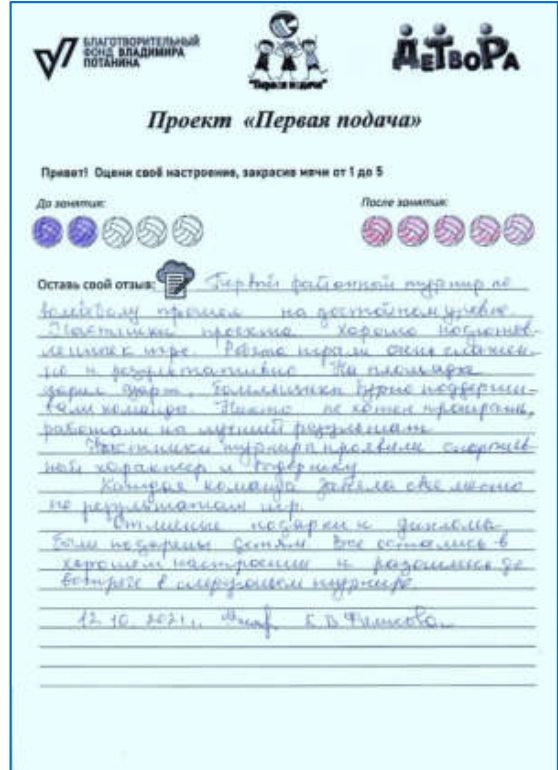 БЛАГОТВОРИТЕЛЬНЫЙ
ФОНД ВЛАДИМИРА
ПОТАНИНА
"Первая подача"
ДЕТВОРА
Проект «Первая подача»
Привет! Оцени своё настроение, закрасив мячи от 1 до 5
До занятия:
После занятия:
Оставь свой отзыв: Первый районный турнир по
волейболу прошел на достойном уровне.
Участники проекта хорошо подготов-
лены к игре. Ребята играли очень слажен-
но и результативно. На площадке
царил азарт, болельщики бурно поддержи-
вали команды. Никто не хотел проиграть,
работали на лучший результат.
Участники турнира проявили спортив-
ный характер и выдержку.
Каждая команда заняла свое место
по результатам игр.
Отличные подарки и дипломы
были подарены детям. Все остались в
хорошем настроении и разошлись до
встрече в следующем турнире.
12.10.2021г.